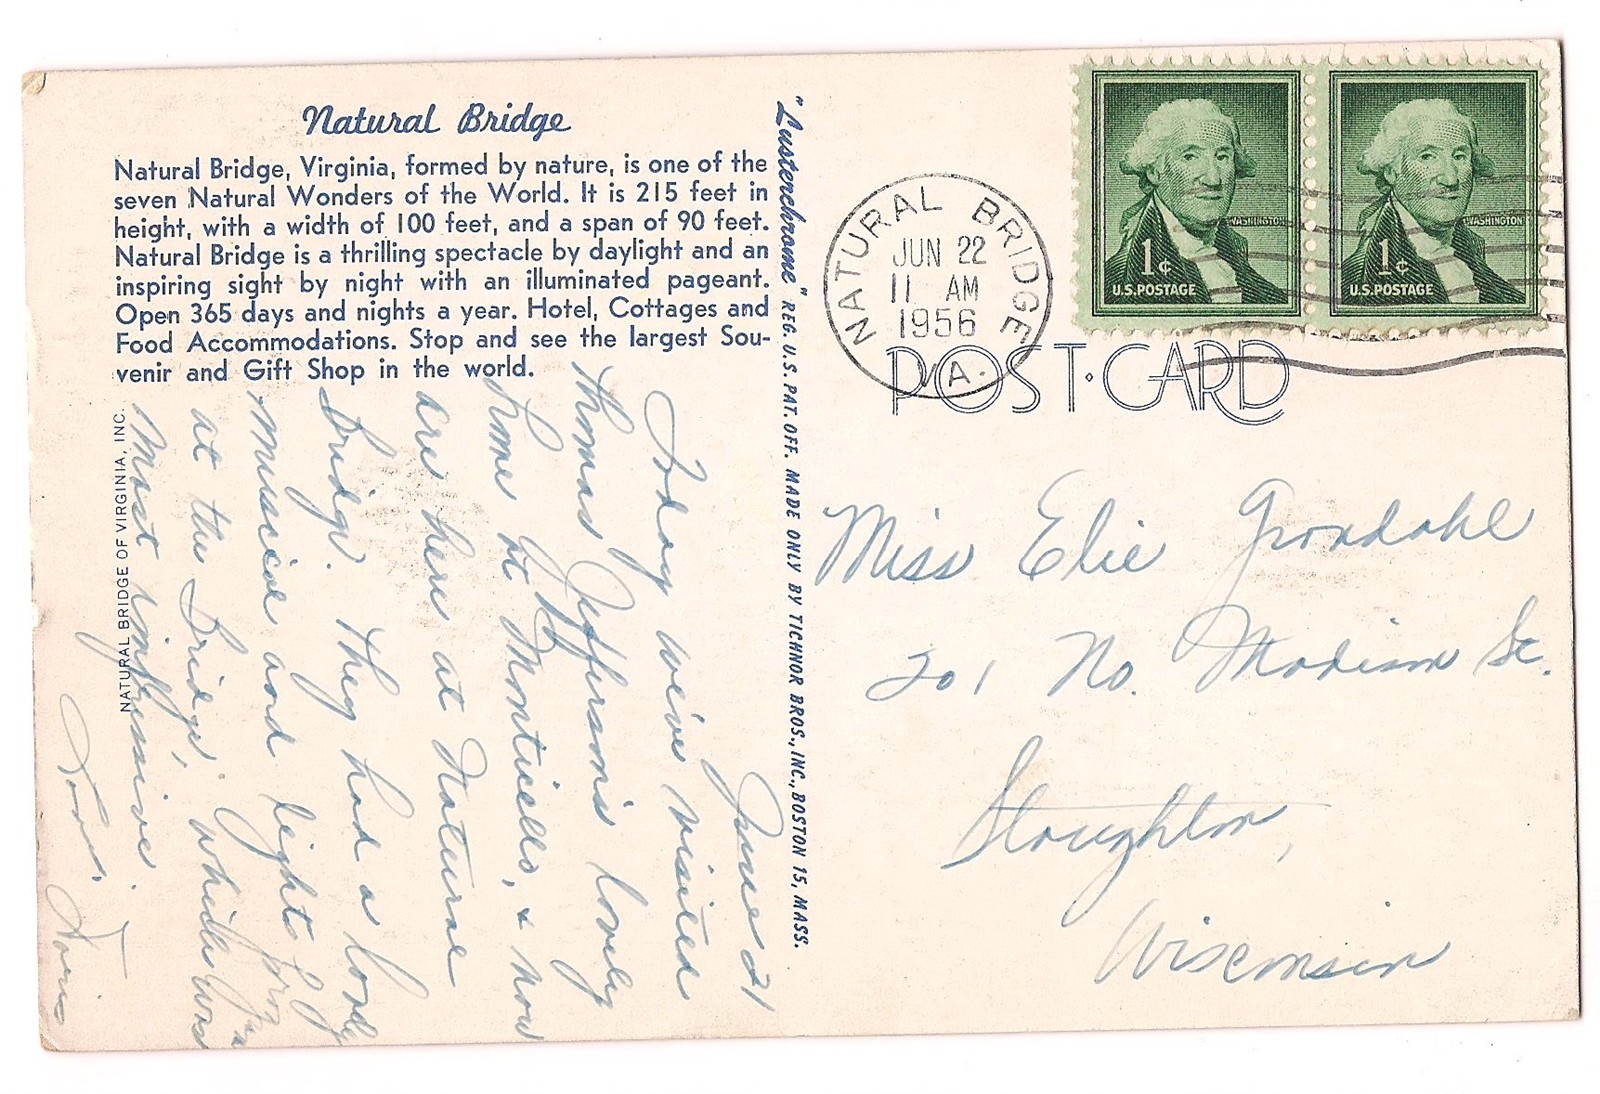 Natural Bridge
Natural Bridge, Virginia, formed by nature, is one of the
seven Natural Wonders of the World. It is 215 feet in
height, with a width of 100 feet, and a span of 90 feet.
Natural Bridge is a thrilling spectacle by daylight and an
inspiring sight by night with an illuminated pageant.
Open 365 days and nights a year. Hotel, Cottages and
Food Accommodations. Stop and see the largest Sou-
venir and Gift Shop in the world.
NATURAL BRIDGE OF VIRGINIA, INC.
June 21
Today we've visited
Thomas Jefferson's lovely
home at Monticello, & now
are here at Natural
Bridge. They had a lovely
musical and light
at the Bridge, which was
Most impressive.
Love, Doris
"Lusterchrome" REG. U.S. PAT. OFF. MADE ONLY BY TICHNOR BROS., INC., BOSTON 15, MASS.
NATURAL BRIDGE
JUN 22
11 AM
1956
VA.
WASHINGTON
1¢
U.S. POSTAGE
WASHINGTON
1¢
U.S. POSTAGE
POST·CARD
Miss Elie Grondahl
201 No. Madison St.
Stoughton,
Wisconsin